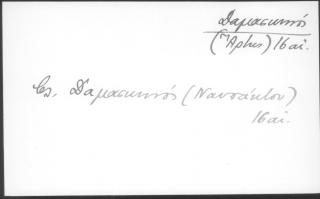 Δαμασκηνός
(Ἄρτης) 16 αἰ.
Βλ. Δαμασκηνός (Ναυπάκτου)
16 αἰ.